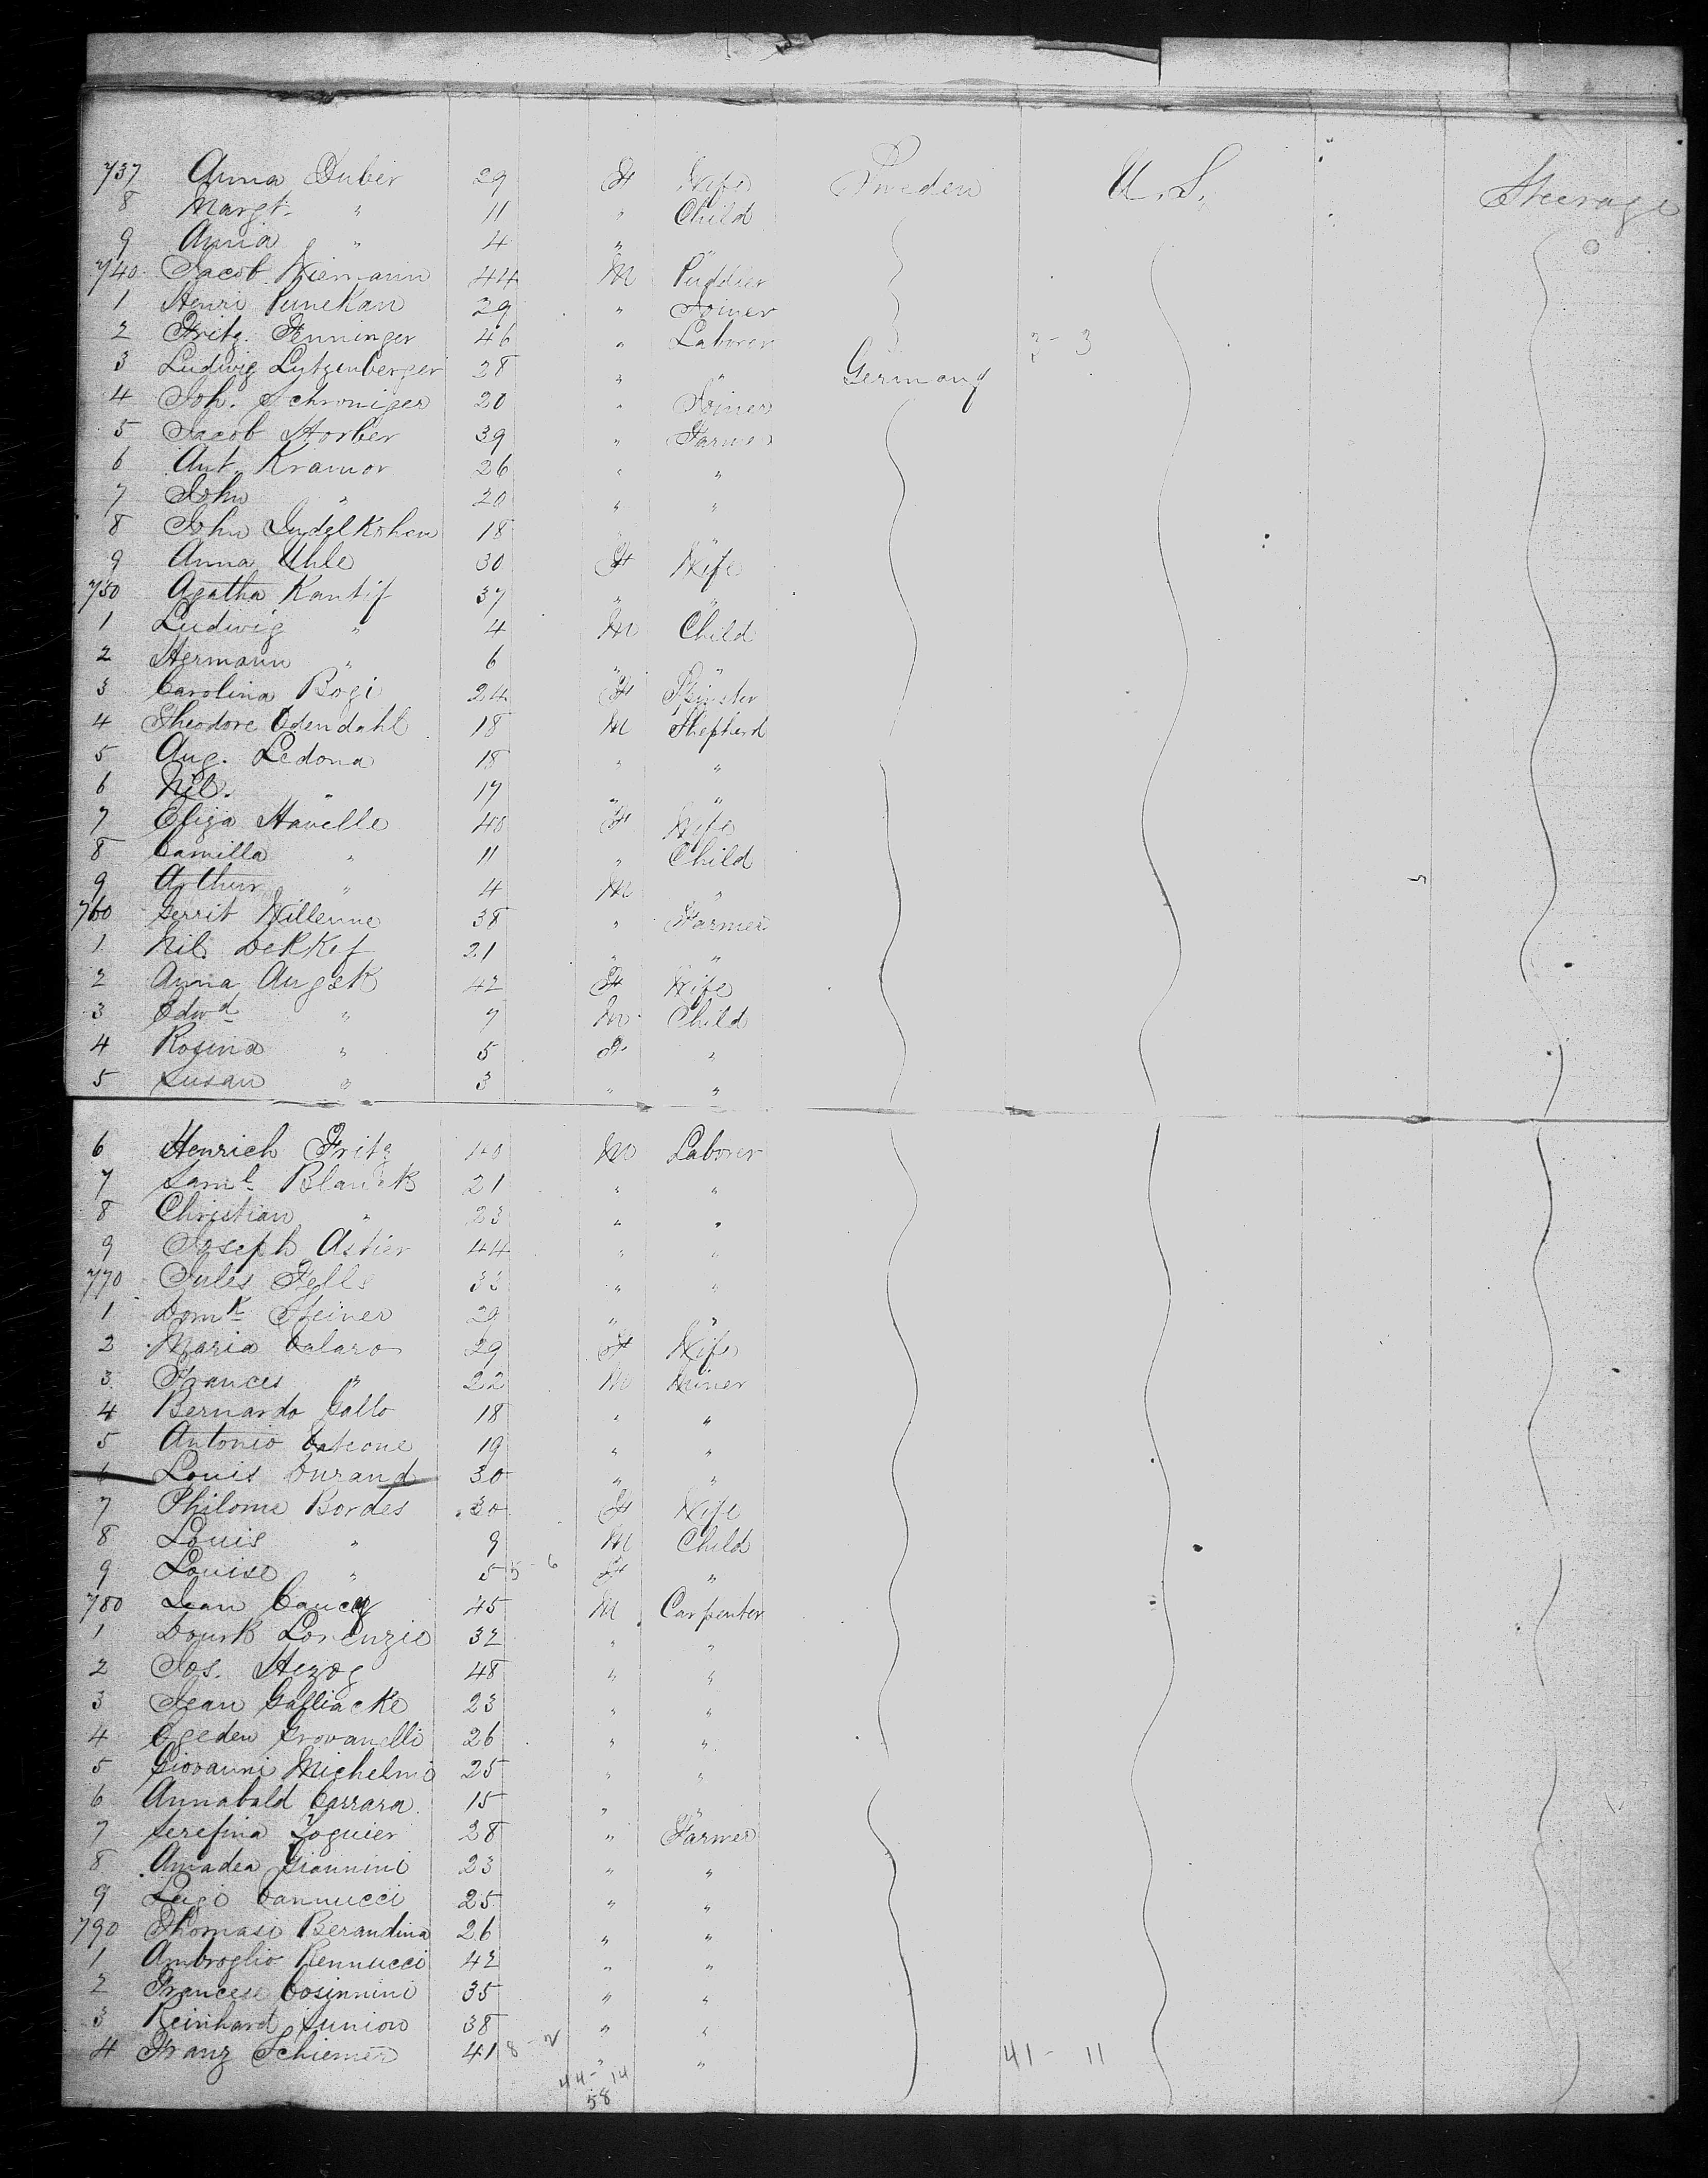 737 Anna Duber 29 F Wife Sweden U.S. Steerage
8 Margt. " 11 " Child
9 Anna " 4 " "
740 Jacob Niemann 44 M Puddler
1 Henri Punekan 29 " Joiner
2 Fritz Fenninger 46 " Laborer 3-3
3 Ludwig Lutzenberger 28 " " Germany
4 Joh. Schroniger 20 " Joiner
5 Jacob Horber 39 " Farmer
6 Ant. Kramor 26 " "
7 John " 20 " "
8 John Indelkohen 18 " "
9 Anna Uhle 30 F Wife
750 Agatha Kantif 37 " "
1 Ludwig " 4 M Child
2 Hermann " 6 " "
3 Carolina Bogi 24 F Spinster
4 Theodore Odendahl 18 M Shepherd
5 Aug. Ledona 18 " "
6 Nil. " 17 " "
7 Eliza Havelle 40 F Wife
8 Camilla " 11 " Child
9 Arthur " 4 M "
760 Gerrit Willenne 38 " Farmer
1 Nil. 21 " "
2 Anna 42 F Wife
3 Edwd " 7 M Child
4 Rosina " 5 F "
5 Susan " 3 " "
6 Henrich Fritz 40 M Laborer
7 Saml Blanck 21 " "
8 Christian " 23 " "
9 Joseph Astier 44 " "
770 Jules Fells 33 " "
1 Domk Steiner 29 " "
2 Maria Calaro 29 F Wife
3 Frances " 22 M Miner
4 Bernardo Gallo 18 " "
5 Antonio 19 " "
6 Louis Durand 30 " "
7 Philome Bordes 30 F Wife
8 Louis " 9 M Child
9 Louise " 5 5-6 F "
780 Jean 45 M Carpenter
1 Lorenzio 32 " "
2 Jos. Hezog 48 " "
3 Jean Galliacke 23 " "
4 Grovanelli 26 " "
5 Giovanni Michelmo 25 " "
6 Annabald Carrara 15 " "
7 Serefina Zoguier 28 " Farmer
8 Amadea Giannini 23 " "
9 Lugi Cannucci 25 " "
790 Thomasi Berandina 26 " "
1 Ambroglio Rennucci 42 " "
2 Francese Cosinnini 35 " "
3 Reinhard Junion 38 " "
4 Franz Schiemer 41 8-2 " " 41-11
44-14
58